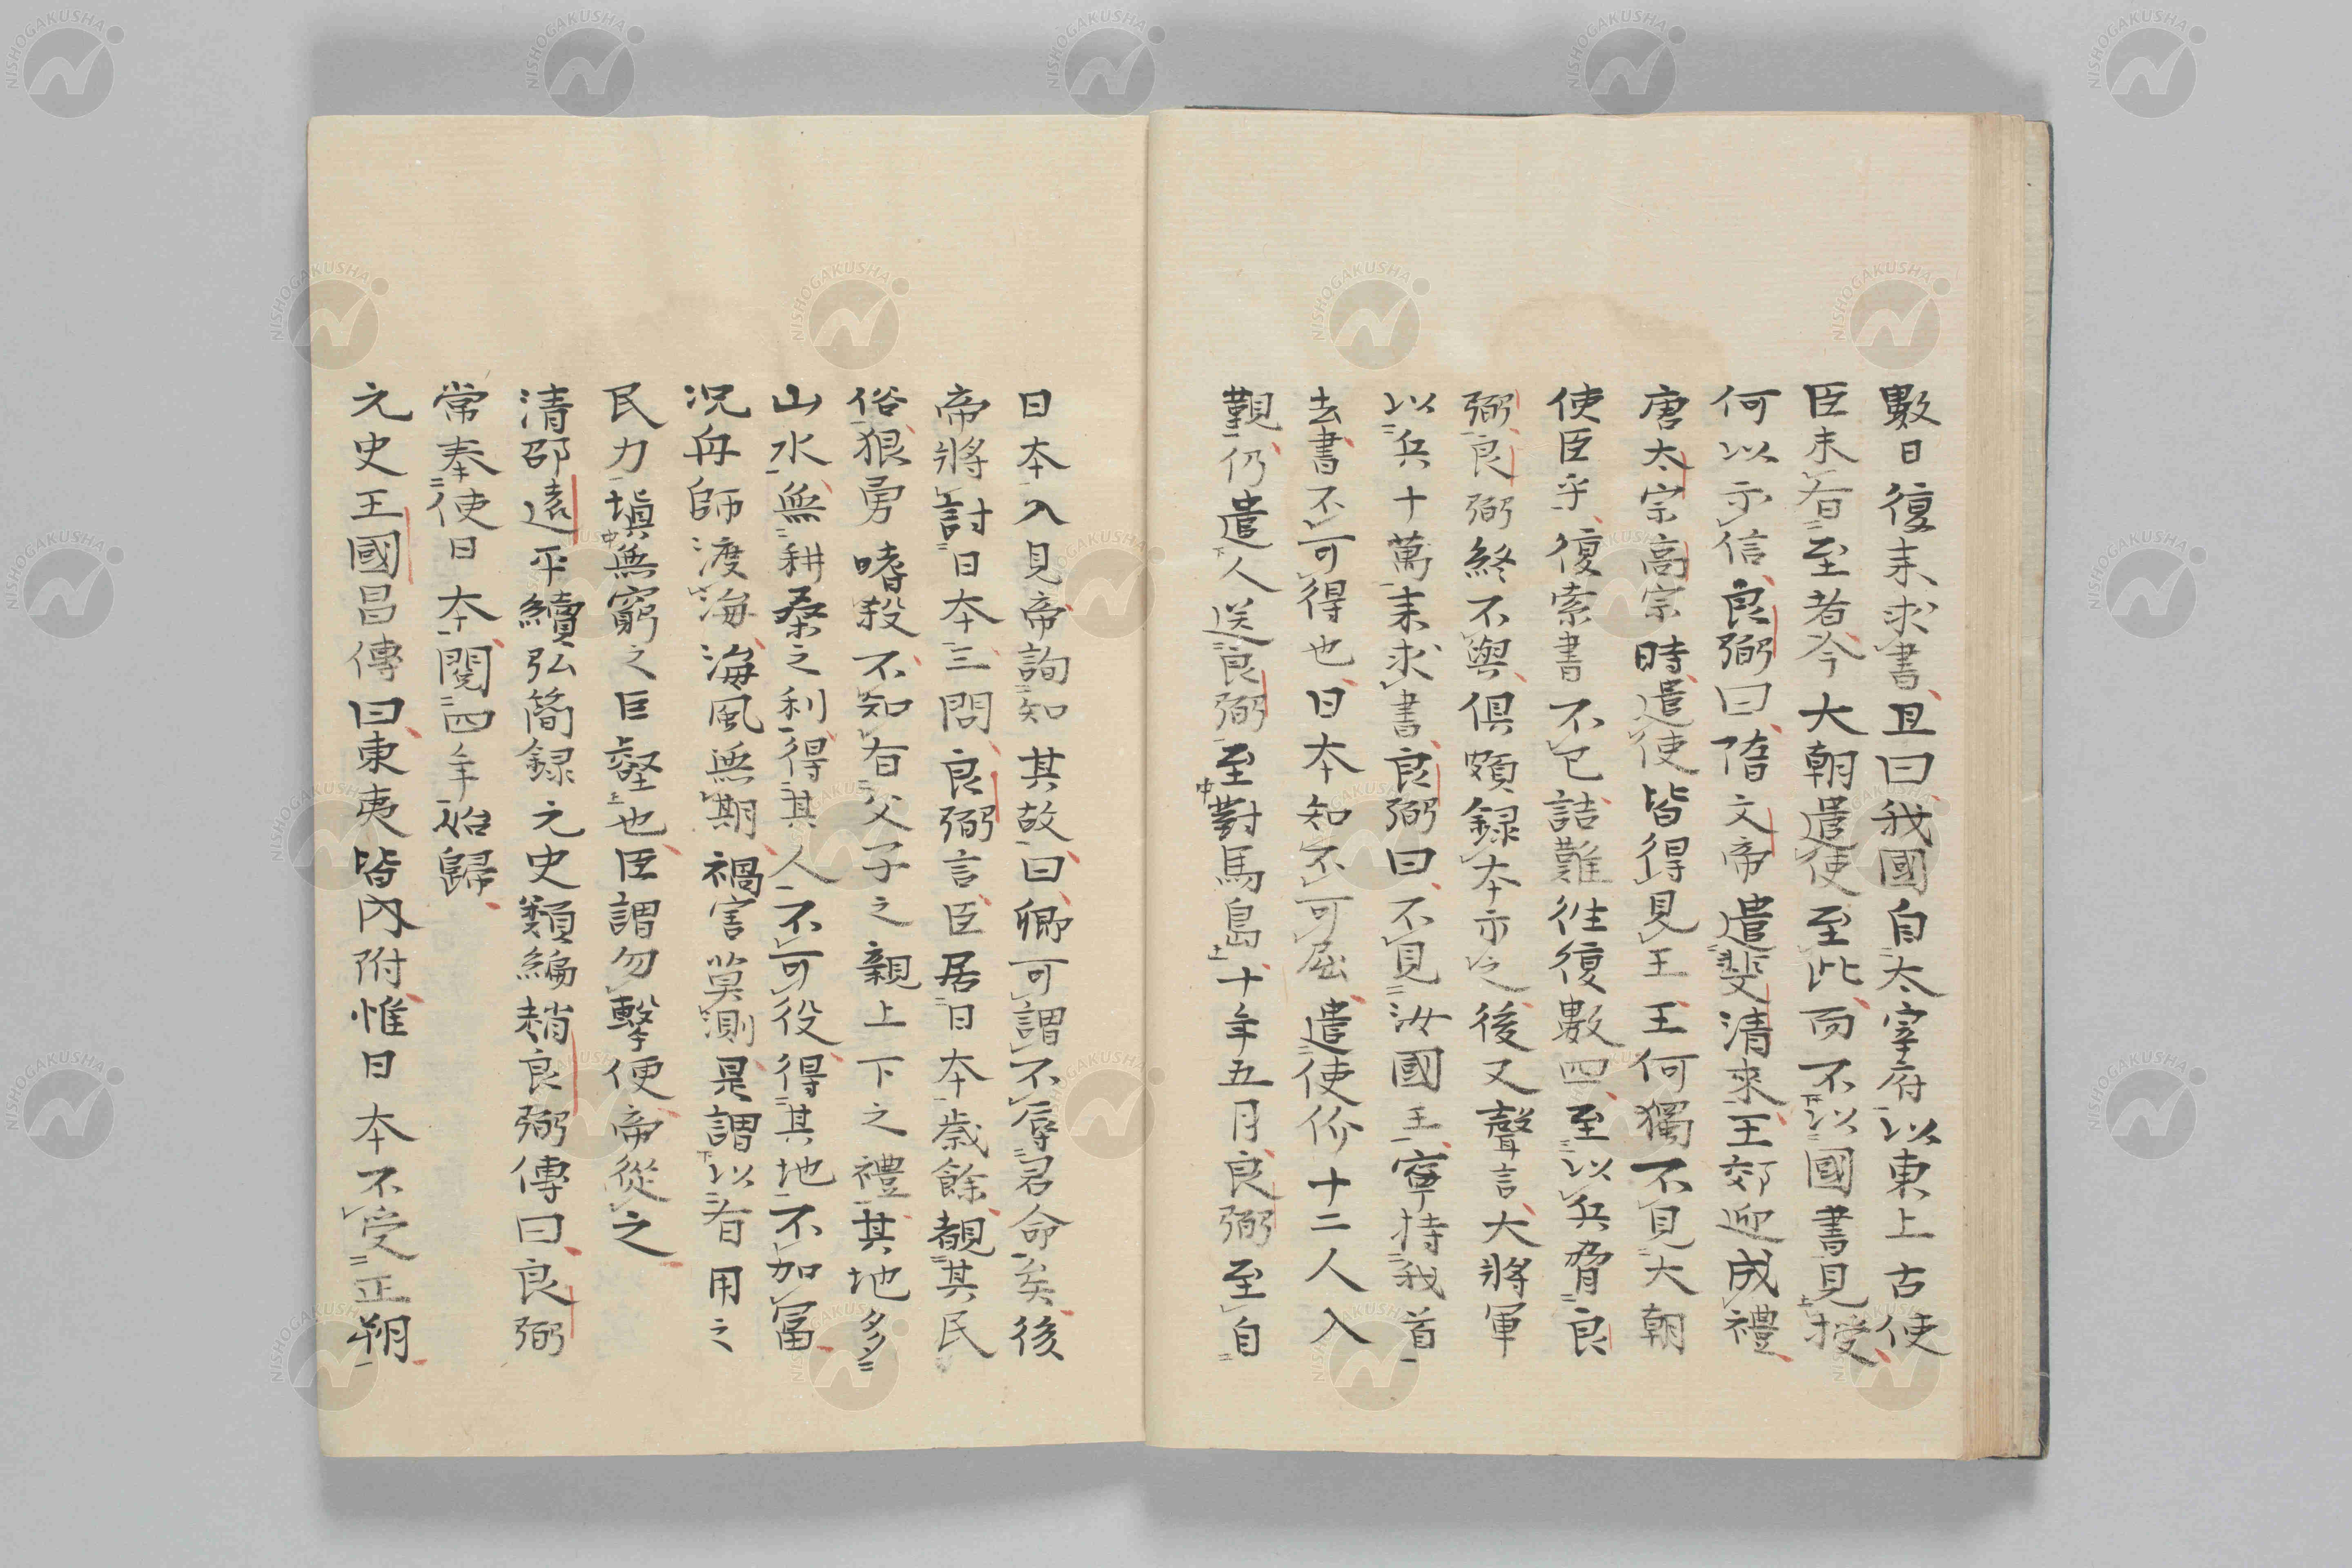 數日復来求書且曰我國自太宰府以東上古使
臣未有至者今大朝遣使至此而不以國書見授
何以示信良弼曰隋文帝遣斐清來王郊迎成禮
唐太宗高宗時遣使皆得見王王何獨不見大朝
使臣乎復索書不已詰難往復數四至以兵脅良
弼良弼終不與俱頗録本示之後又聲言大將軍
以兵十萬来求書良弼曰不見汝國王寧持我首
去書不可得也日本知不可屈遣使介十二人入
覲仍遣人送良弼至對馬島十年五月良弼至自
日本入見帝詢知其故曰卿可謂不辱君命矣後
帝將討日本三問良弼言臣居日本歳餘覩其民
俗狠勇嗜殺不知有父子之親上下之禮其地多
山水無耕桑之利得其人不可役得其地不加富
况舟師渡海海風無期禍害莫測是謂以有用之
民力塡無窮之巨壑也臣謂勿擊便帝從之
清邵遠平續弘簡録元史類編趙良弼傳曰良弼
常奉使日本閲四年始歸
元史王國昌傳曰東夷皆内附惟日本不受正朔
NISHOGAKUSHA